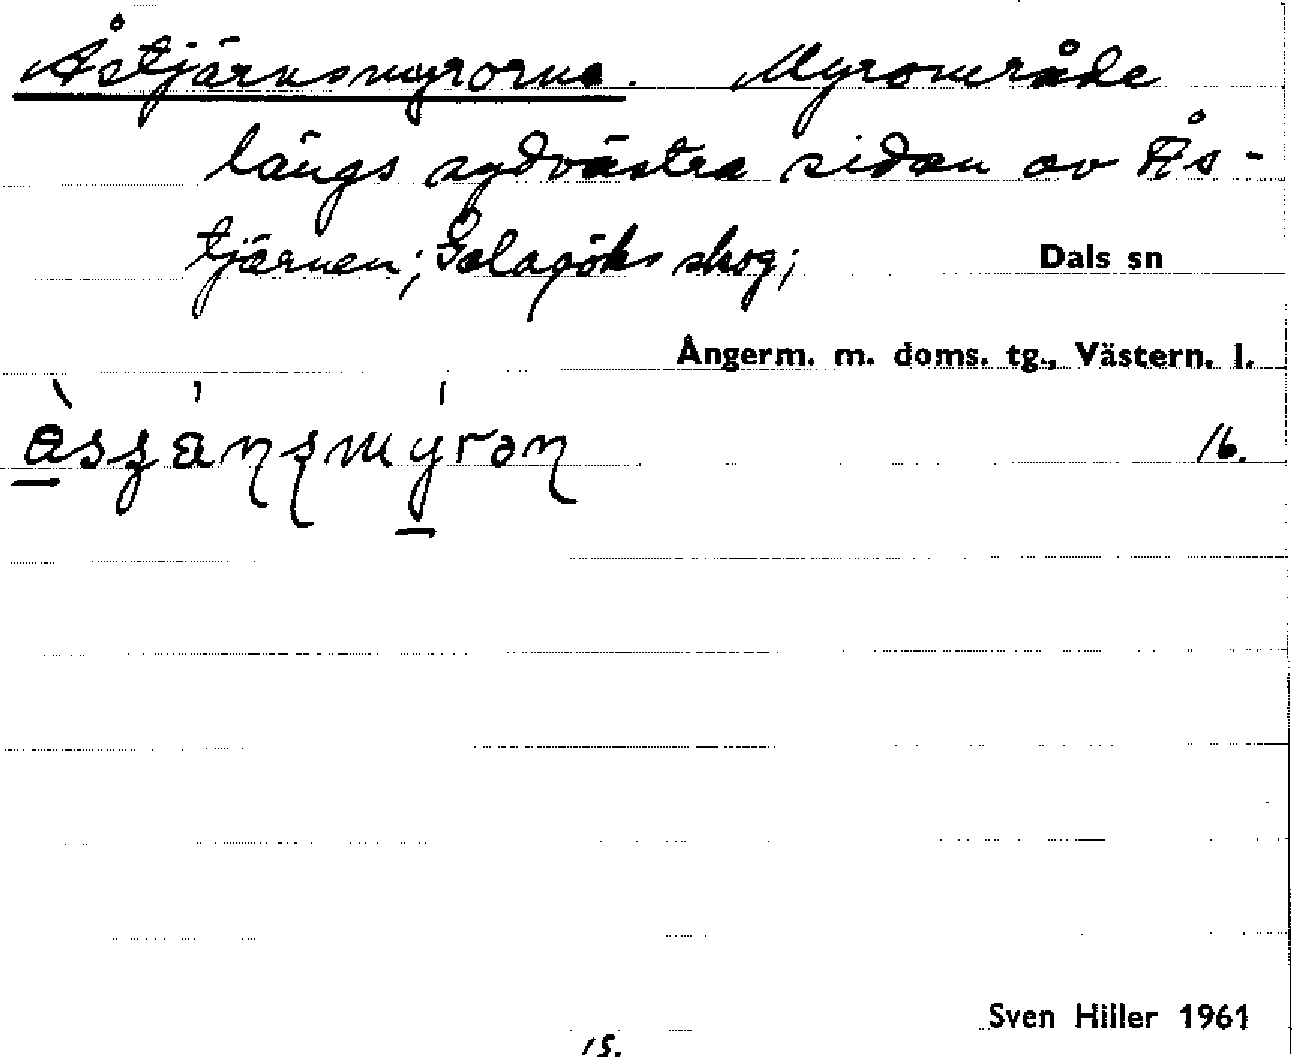 Åstjärnsmyrorna. Myrområde
längs sydvästra sidan av Ås-
tjärnen; skog; Dals sn
Ångerm. m. doms. tg., Västern. l.
16.
Sven Hiller 1961
15.